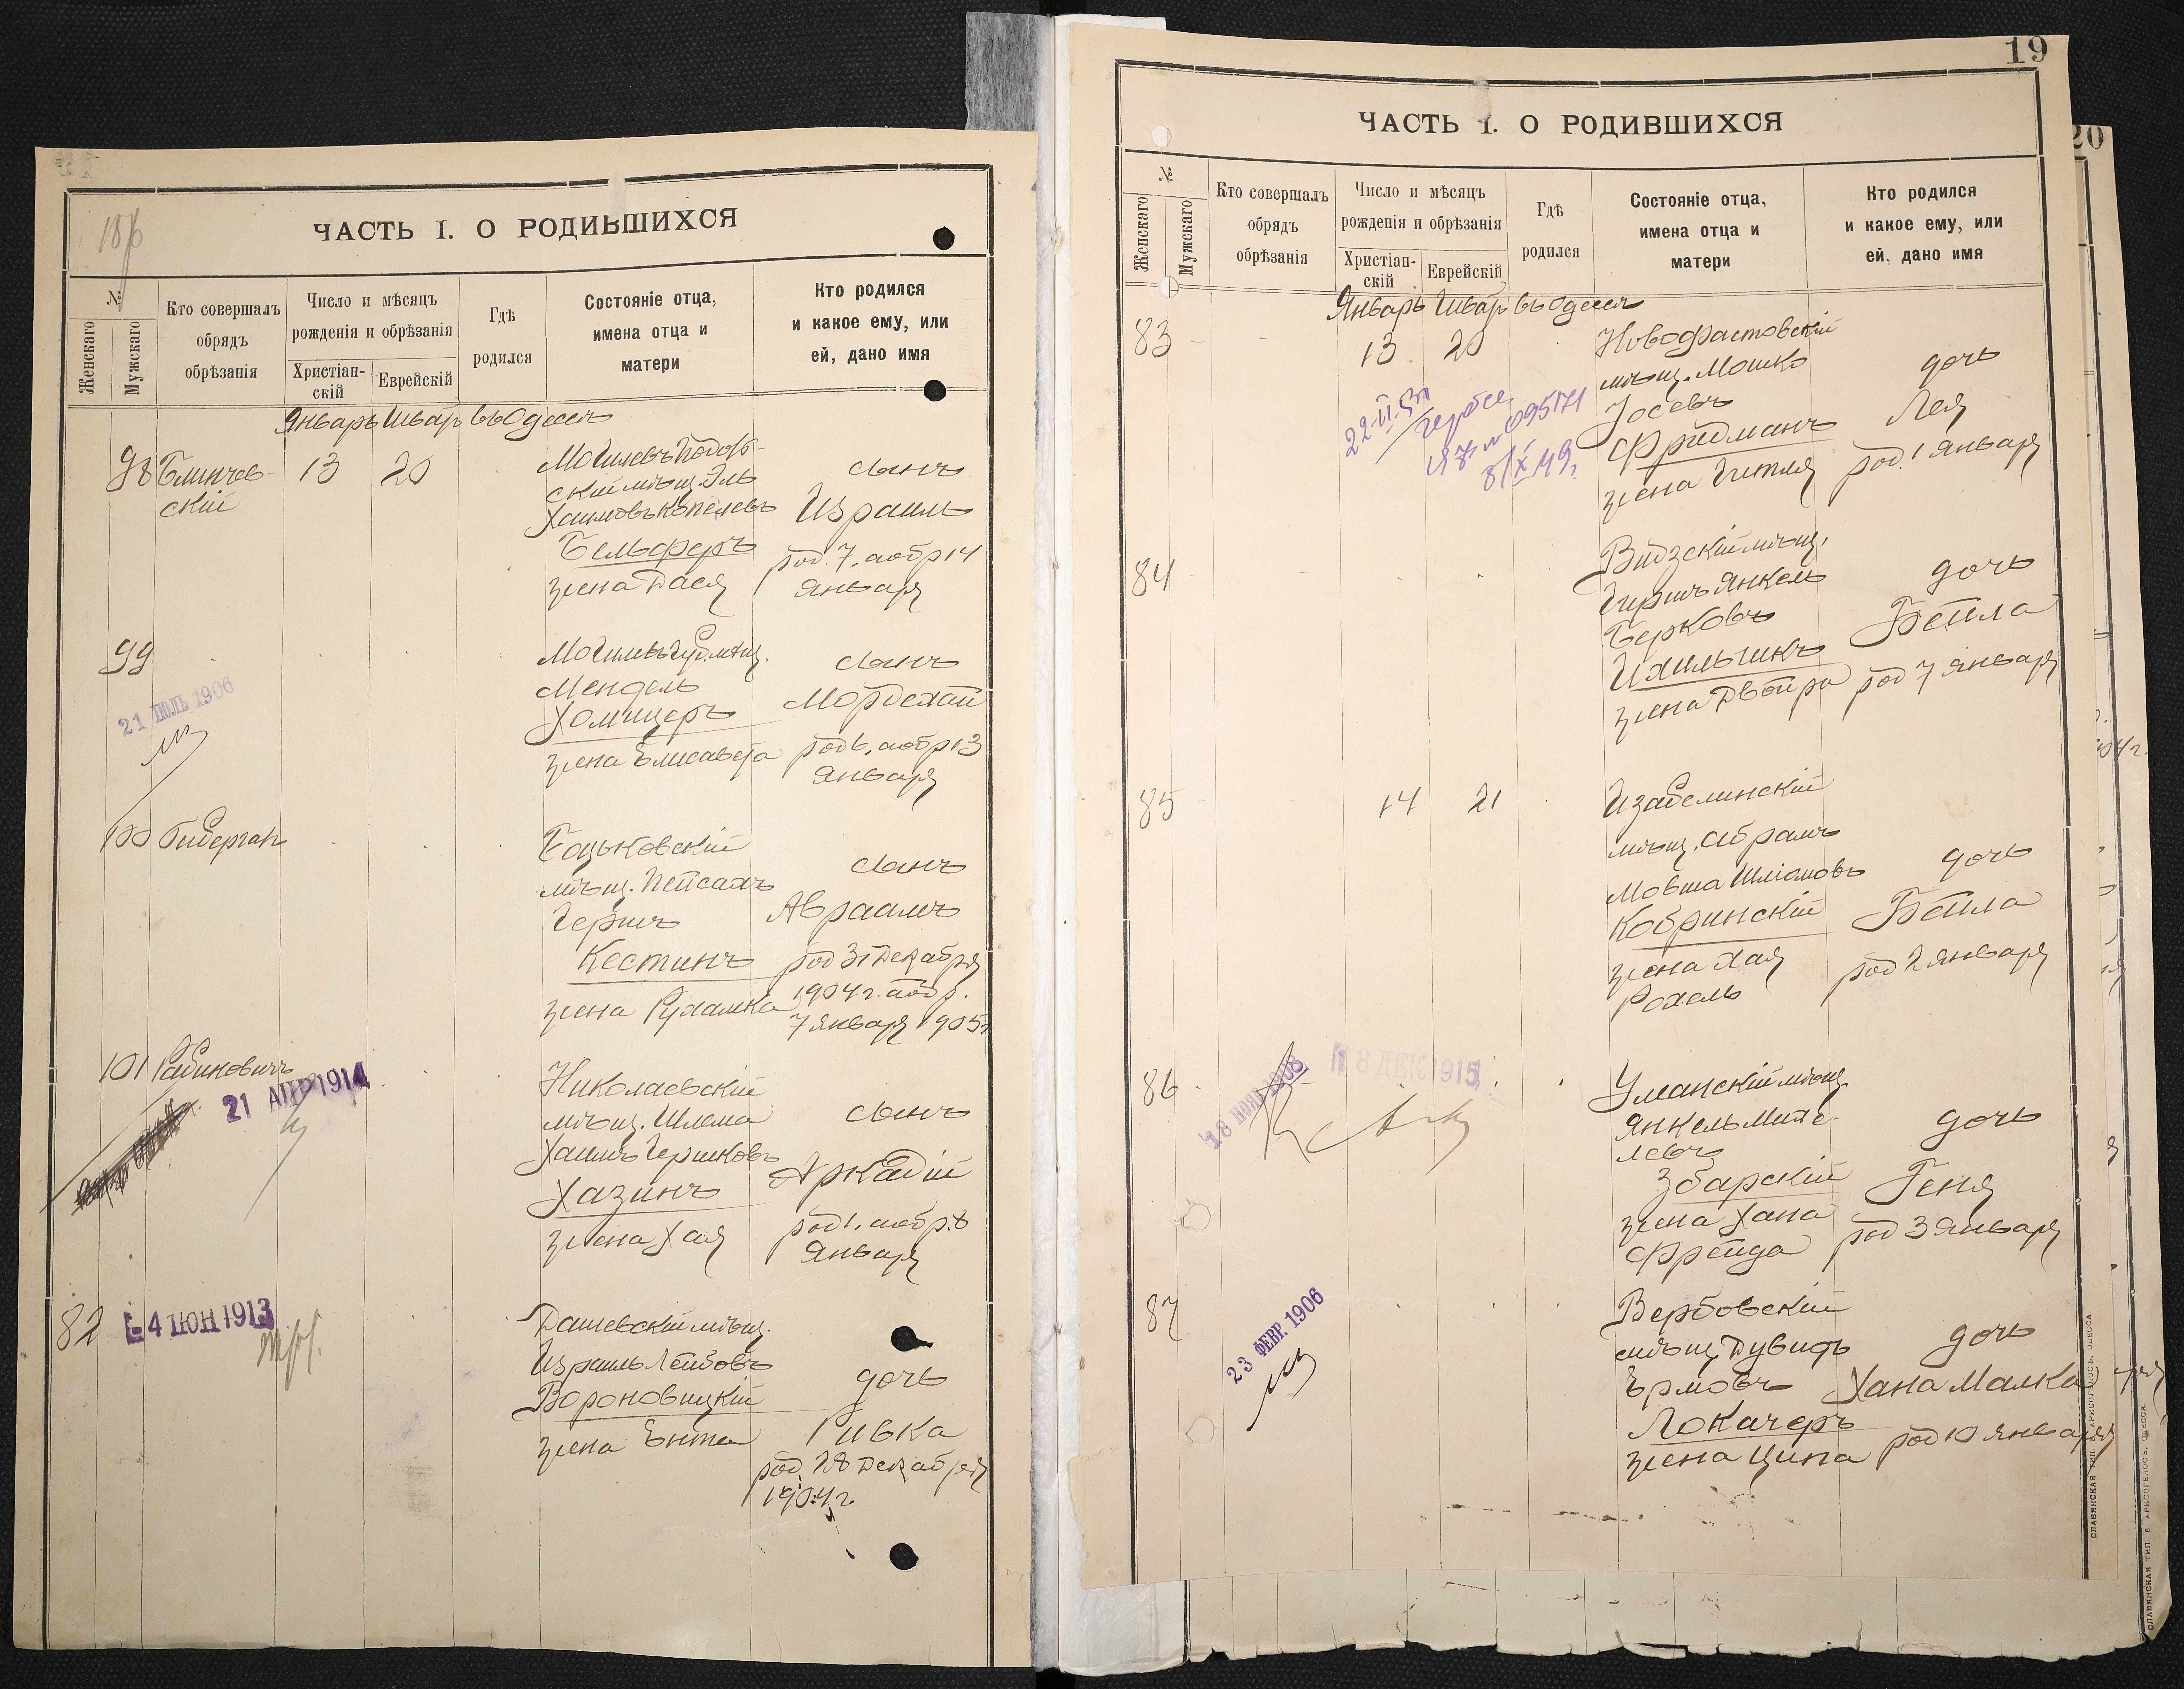 ЧАСТЬ I. О РОДИВШИХСЯ
№
Женскаго
Мужскаго
Кто совершалъ
обрядъ
обрѣзанія
Число и мѣсяцъ
рожденія и обрѣзанія
Христіан-
скій
Еврейскій
Гдѣ
родился
Состояніе отца,
имена отца и
матери
Кто родился
и какое ему, или
ей, дано имя
Январь Шватъ въ Одессѣ
98
Блинчев-
скій
13
20
скій мѣщ. Эль
Хаимовъ Копелевъ
Бельферъ
жена Дася
сынъ
Израиль
род. 7, а обр 14
января
99
21 ІЮЛЬ 1906
Мендель
Хомицеръ
жена Елисавета
сынъ
Мордехай
род 6, а обр 13
января
100
Гиберган
Боцьковскій
мѣщ. Пейсахъ
Гершъ
Кестинъ
жена Рухамка
сынъ
Авраамъ
род 31 Декабря
1904 г. а обр.
7 января 1905 г
101
Рабиновичъ
21 АПР 1914
Николаевскій
мѣщ. Шлема
Хаимъ Гершковъ
Хазинъ
жена Хая
сынъ
Аркадій
род 1, а обр. 8
января
82
4 ІЮН 1913
Дашевскій мѣщ.
Израиль Лейбовъ
Вороновицкій
жена Ента
дочь
Ривка
род. 28 Декабря
1904 г.
19
ЧАСТЬ I. О РОДИВШИХСЯ
№
Женскаго
Мужскаго
Кто совершалъ
обрядъ
обрѣзанія
Число и мѣсяцъ
рожденія и обрѣзанія
Христіан-
скій
Еврейскій
Гдѣ
родился
Состояніе отца,
имена отца и
матери
Кто родился
и какое ему, или
ей, дано имя
Январь Шватъ въ Одессѣ
83
13
20
Новофастовскій
мѣщ. Мошко
Іосевъ
Фридманъ
жена Гитля
дочь
Лея
род. 1 января
84
Видзскій мѣщ.
Гиршъ Янкель
Берковъ
Ихильчикъ
жена Двойра
дочь
Бейла
род 7 января
85
14
21
Изабелинскій
мѣщ. Абрамъ
Мовша Шліомовъ
Кобринскій
жена Хая
Рохель
дочь
Бейла
род 2 января
86
18 НОЯБ 1908
18 ДЕК 1915
Уманскій мѣщ.
Янкель
Збарскій
жена Хана
Фрейда
дочь
Геня
род 3 января
87
23 ФЕВР. 1906
Вербовскій
мѣщ Дувидъ
Ермовъ
Локачеръ
жена Ципа
дочь
Хана Малка
род 10 января
СЛАВЯНСКАЯ ТИП. Е. ХРИСОГЕЛОСЪ, ОДЕССА
20
СЛАВЯНСКАЯ ТИП. Е. ХРИСОГЕЛОСЪ, ОДЕССА